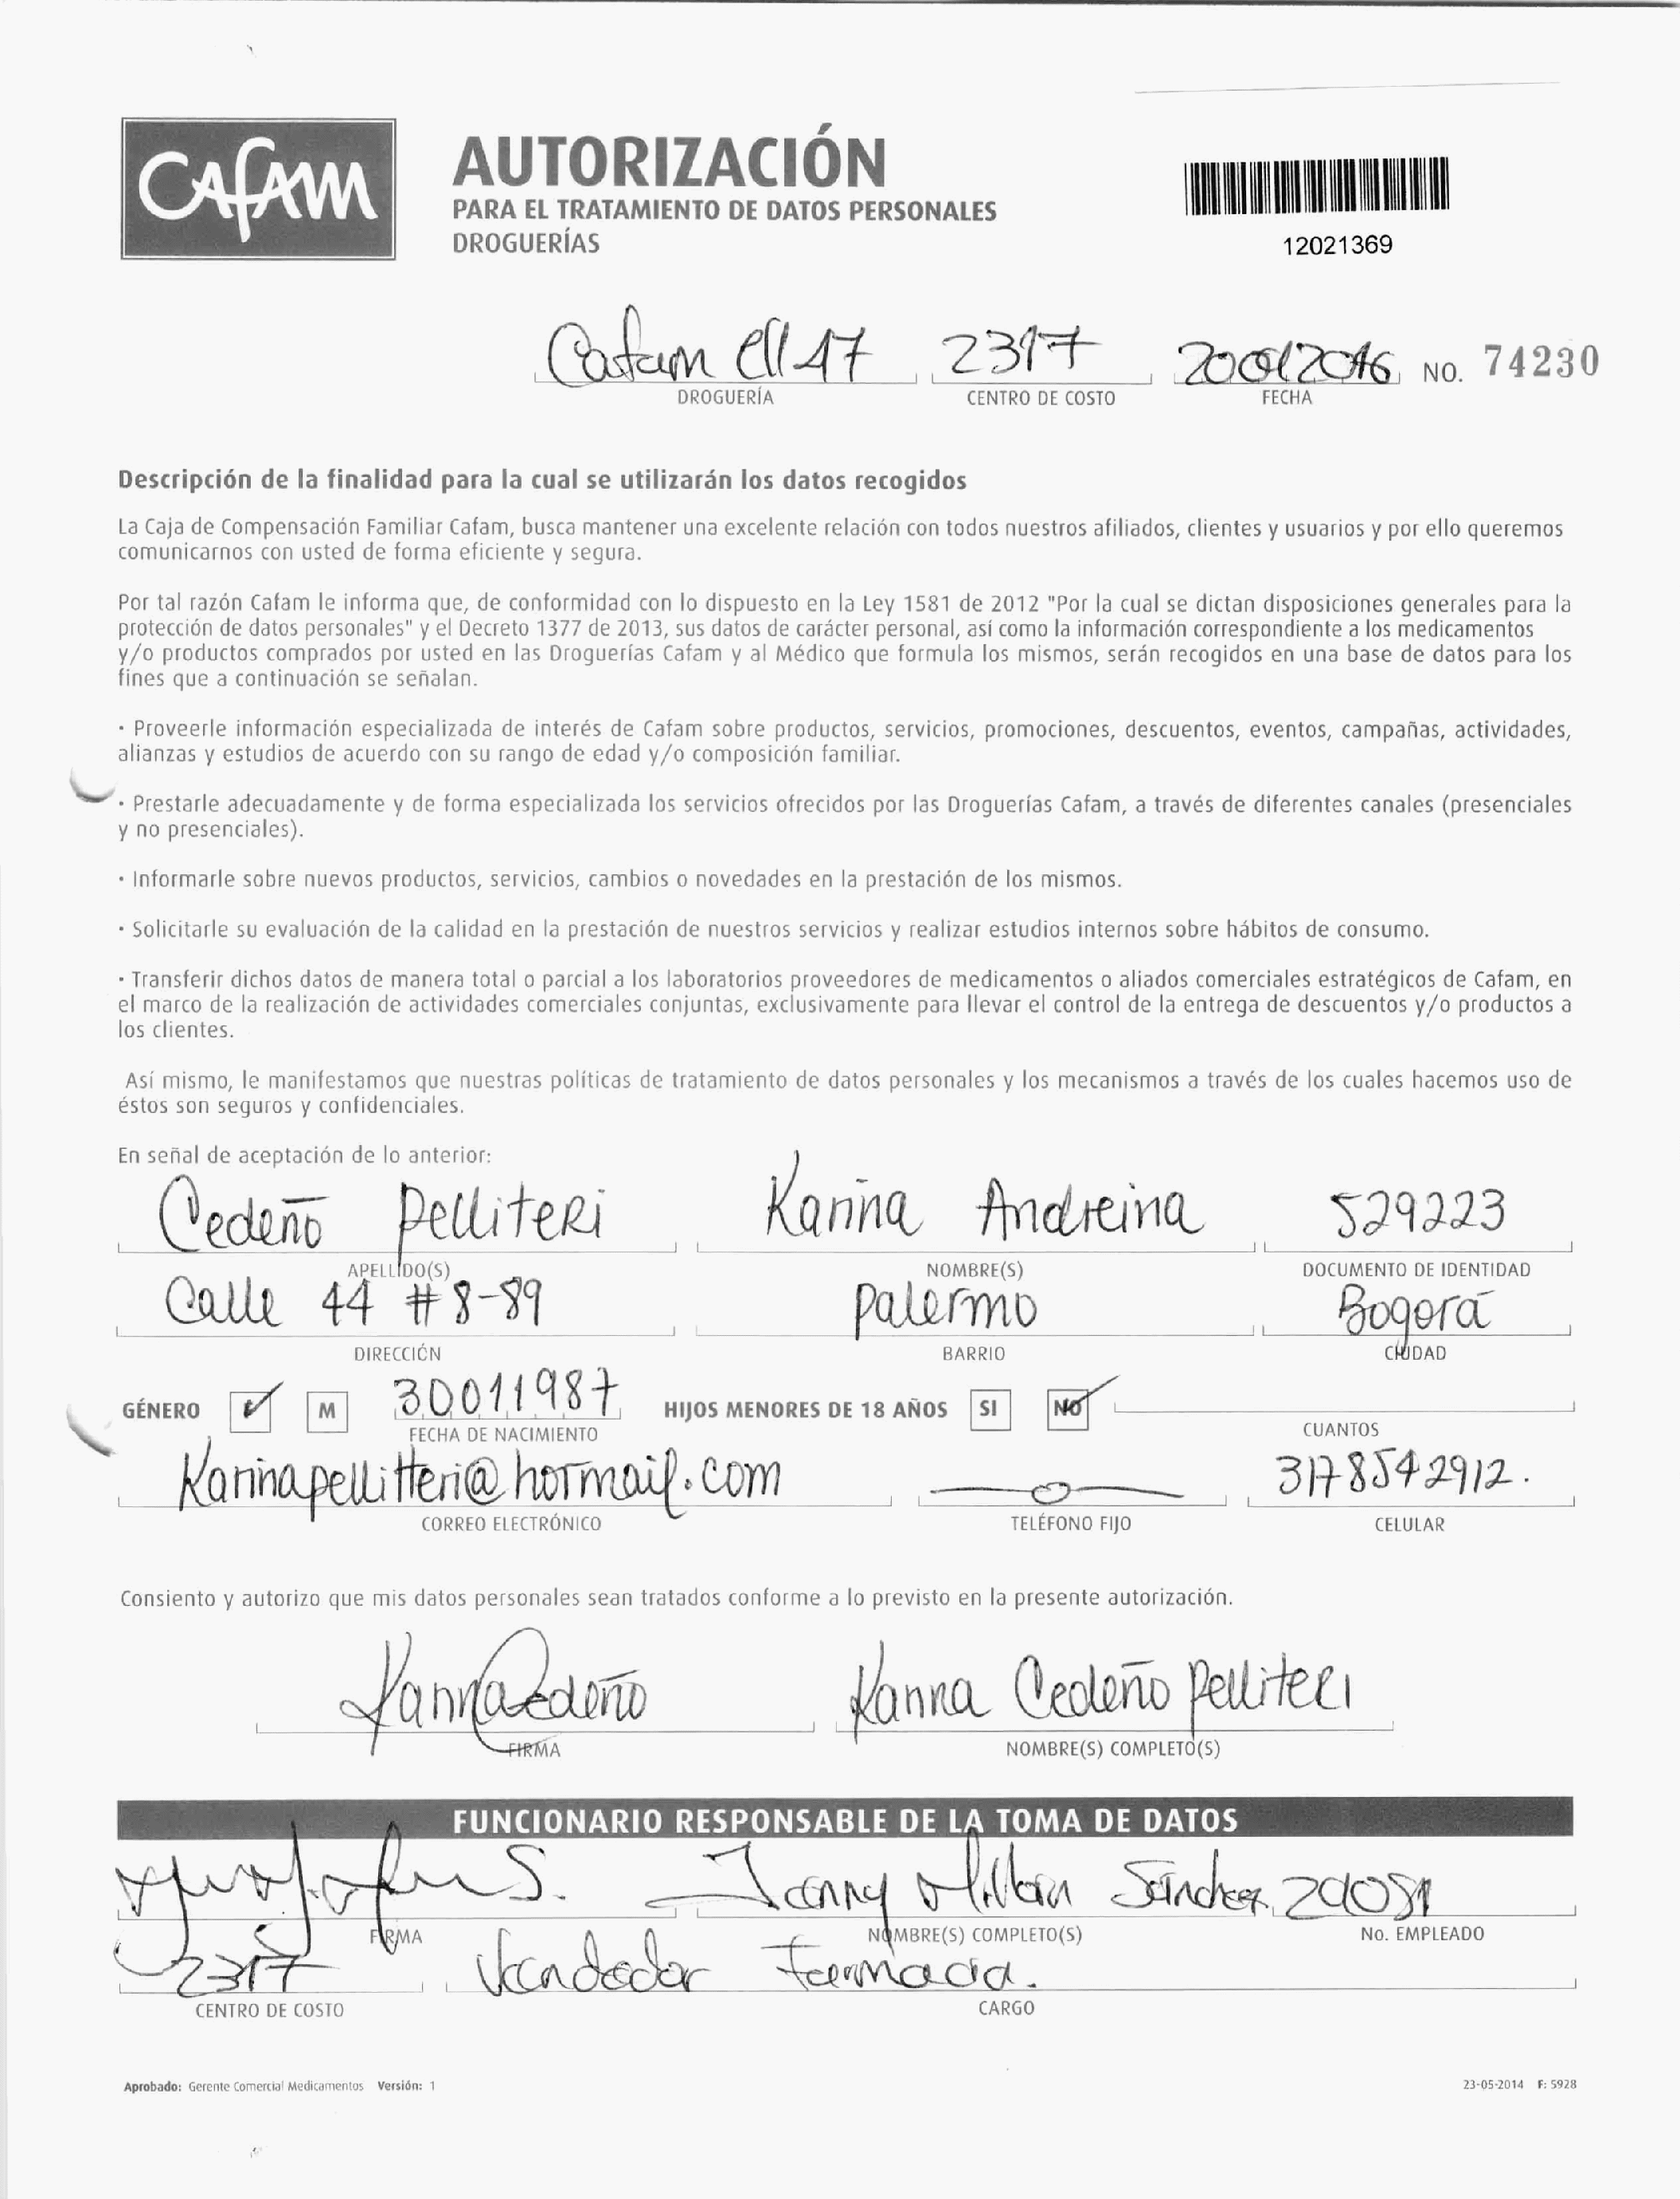 CAFAM
AUTORIZACIÓN
PARA EL TRATAMIENTO DE DATOS PERSONALES
DROGUERÍAS
12021369
Cafam Cll 47 2317 20012016 NO. 74230
DROGUERÍA CENTRO DE COSTO FECHA
Descripción de la finalidad para la cual se utilizarán los datos recogidos
La Caja de Compensación Familiar Cafam, busca mantener una excelente relación con todos nuestros afiliados, clientes y usuarios y por ello queremos
comunicarnos con usted de forma eficiente y segura.
Por tal razón Cafam le informa que, de conformidad con lo dispuesto en la Ley 1581 de 2012 "Por la cual se dictan disposiciones generales para la
protección de datos personales" y el Decreto 1377 de 2013, sus datos de carácter personal, así como la información correspondiente a los medicamentos
y/o productos comprados por usted en las Droguerías Cafam y al Médico que formula los mismos, serán recogidos en una base de datos para los
fines que a continuación se señalan.
· Proveerle información especializada de interés de Cafam sobre productos, servicios, promociones, descuentos, eventos, campañas, actividades,
alianzas y estudios de acuerdo con su rango de edad y/o composición familiar.
· Prestarle adecuadamente y de forma especializada los servicios ofrecidos por las Droguerías Cafam, a través de diferentes canales (presenciales
y no presenciales).
· Informarle sobre nuevos productos, servicios, cambios o novedades en la prestación de los mismos.
· Solicitarle su evaluación de la calidad en la prestación de nuestros servicios y realizar estudios internos sobre hábitos de consumo.
· Transferir dichos datos de manera total o parcial a los laboratorios proveedores de medicamentos o aliados comerciales estratégicos de Cafam, en
el marco de la realización de actividades comerciales conjuntas, exclusivamente para llevar el control de la entrega de descuentos y/o productos a
los clientes.
Así mismo, le manifestamos que nuestras políticas de tratamiento de datos personales y los mecanismos a través de los cuales hacemos uso de
éstos son seguros y confidenciales.
En señal de aceptación de lo anterior:
Cedeño Pelliteri Karina Andreina 529223
APELLIDO(S) NOMBRE(S) DOCUMENTO DE IDENTIDAD
Calle 44 #8-89 Palermo Bogotá
DIRECCIÓN BARRIO CIUDAD
GÉNERO M 30011987 HIJOS MENORES DE 18 AÑOS SI NO
FECHA DE NACIMIENTO CUANTOS
Karinapellitteri@hotmail.com 3178542912.
CORREO ELECTRÓNICO TELÉFONO FIJO CELULAR
Consiento y autorizo que mis datos personales sean tratados conforme a lo previsto en la presente autorización.
Karina Cedeño Karina Cedeño Pelliteri
FIRMA NOMBRE(S) COMPLETO(S)
FUNCIONARIO RESPONSABLE DE LA TOMA DE DATOS
Jenny Millan Sánchez
FIRMA NOMBRE(S) COMPLETO(S) No. EMPLEADO
2317 Vendedor Farmacia.
CENTRO DE COSTO CARGO
Aprobado: Gerente Comercial Medicamentos Versión: 1 23-05-2014 F: 5928